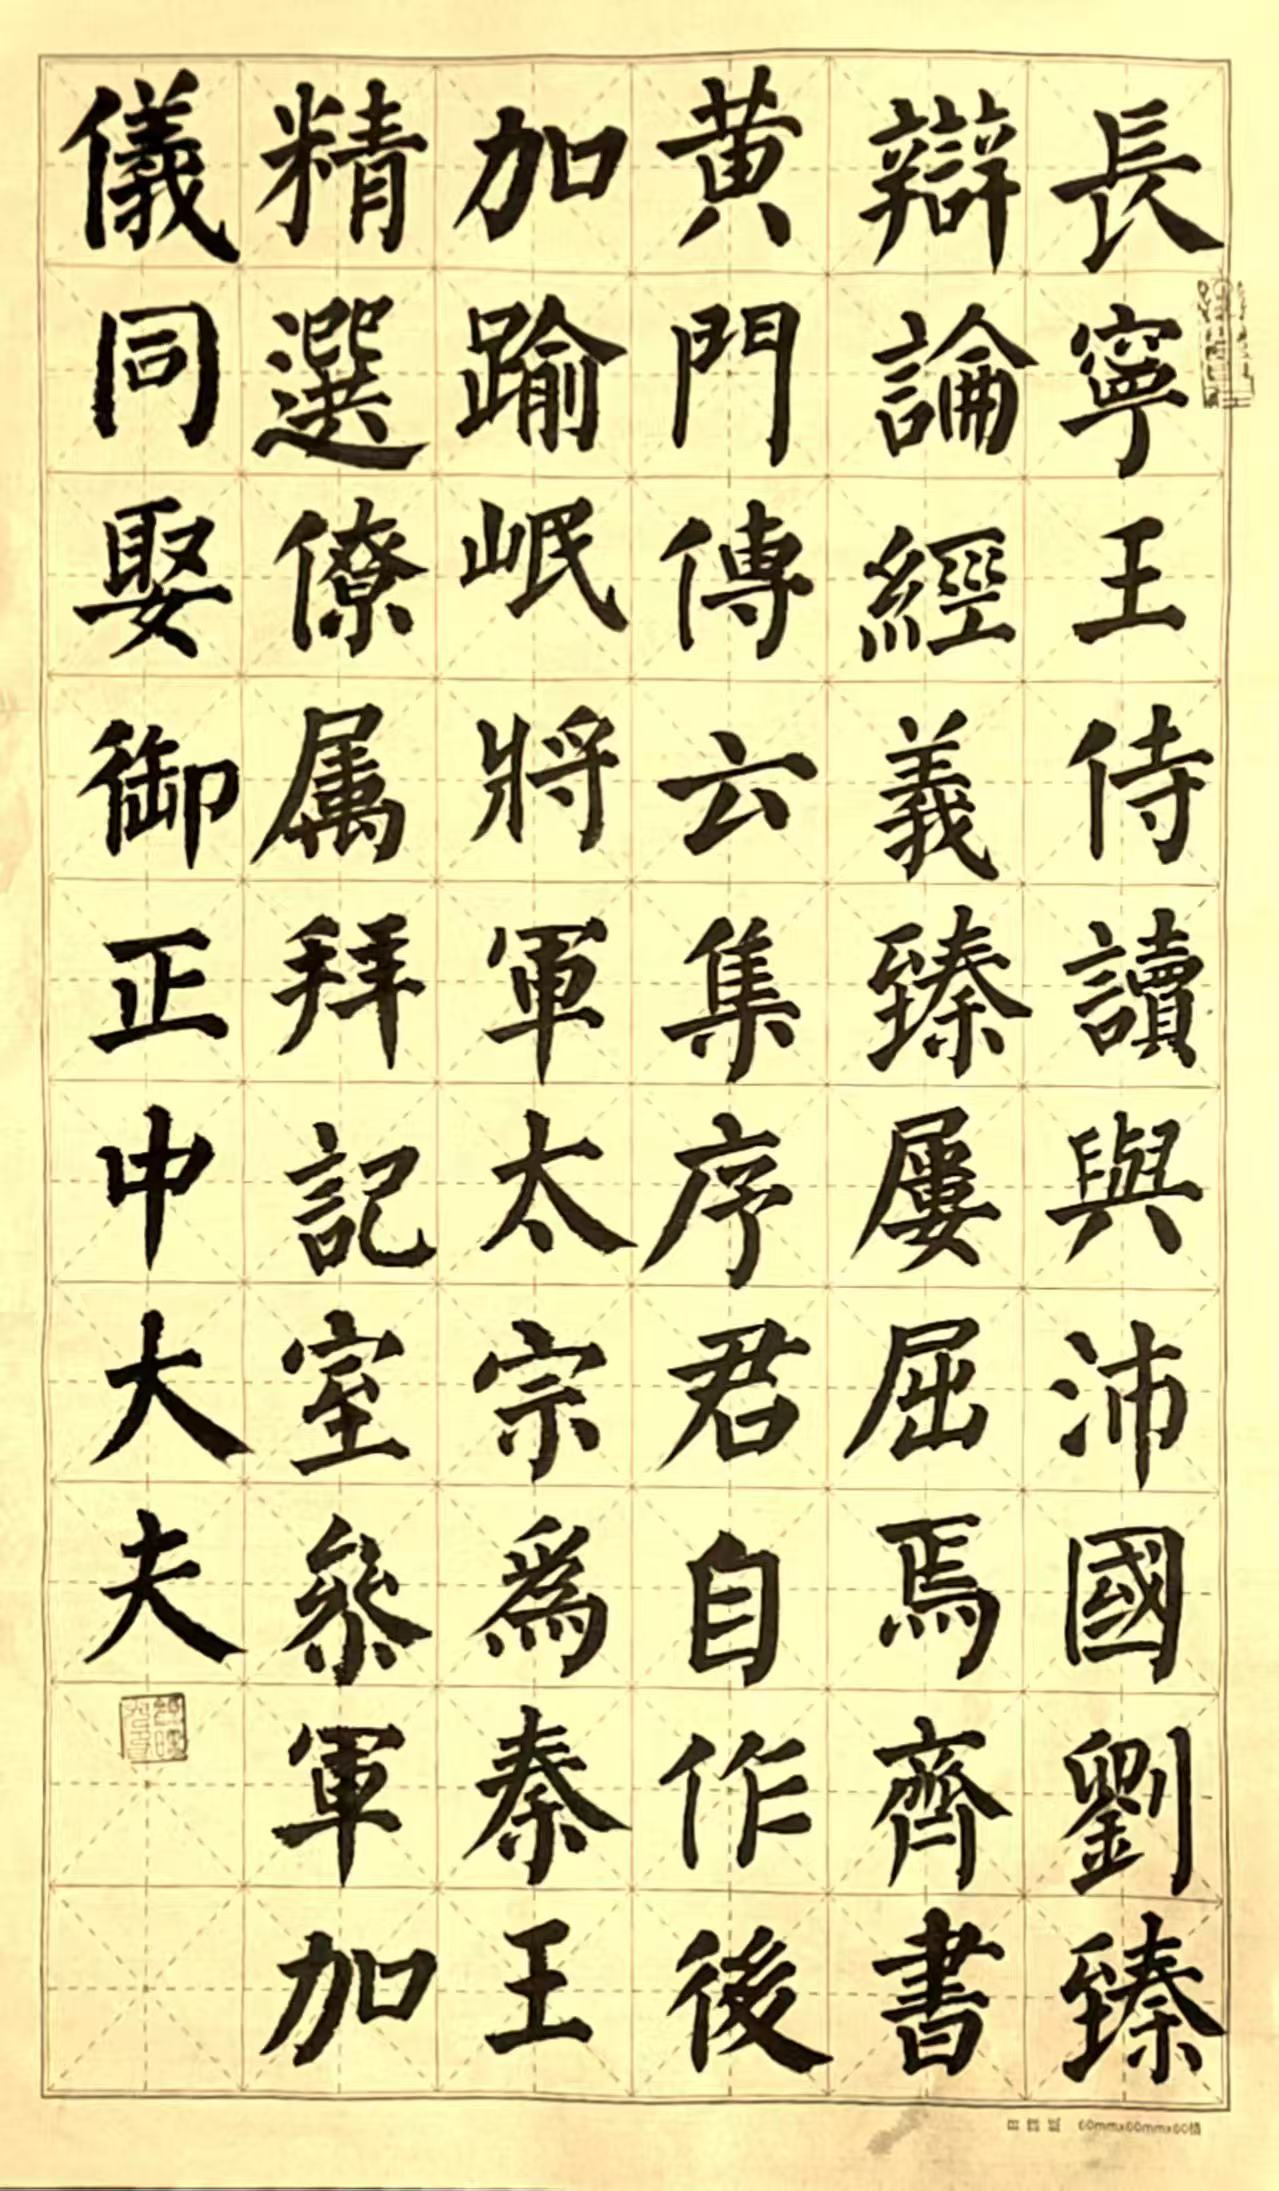 長寧王侍讀與沛國劉臻
辯論經義臻屢屈焉齊書
黄門傳云集序君自作後
加踰岷將軍太宗爲秦王
精選僚属拜記室叅軍加
儀同娶御正中大夫
60mmx60mmx60格